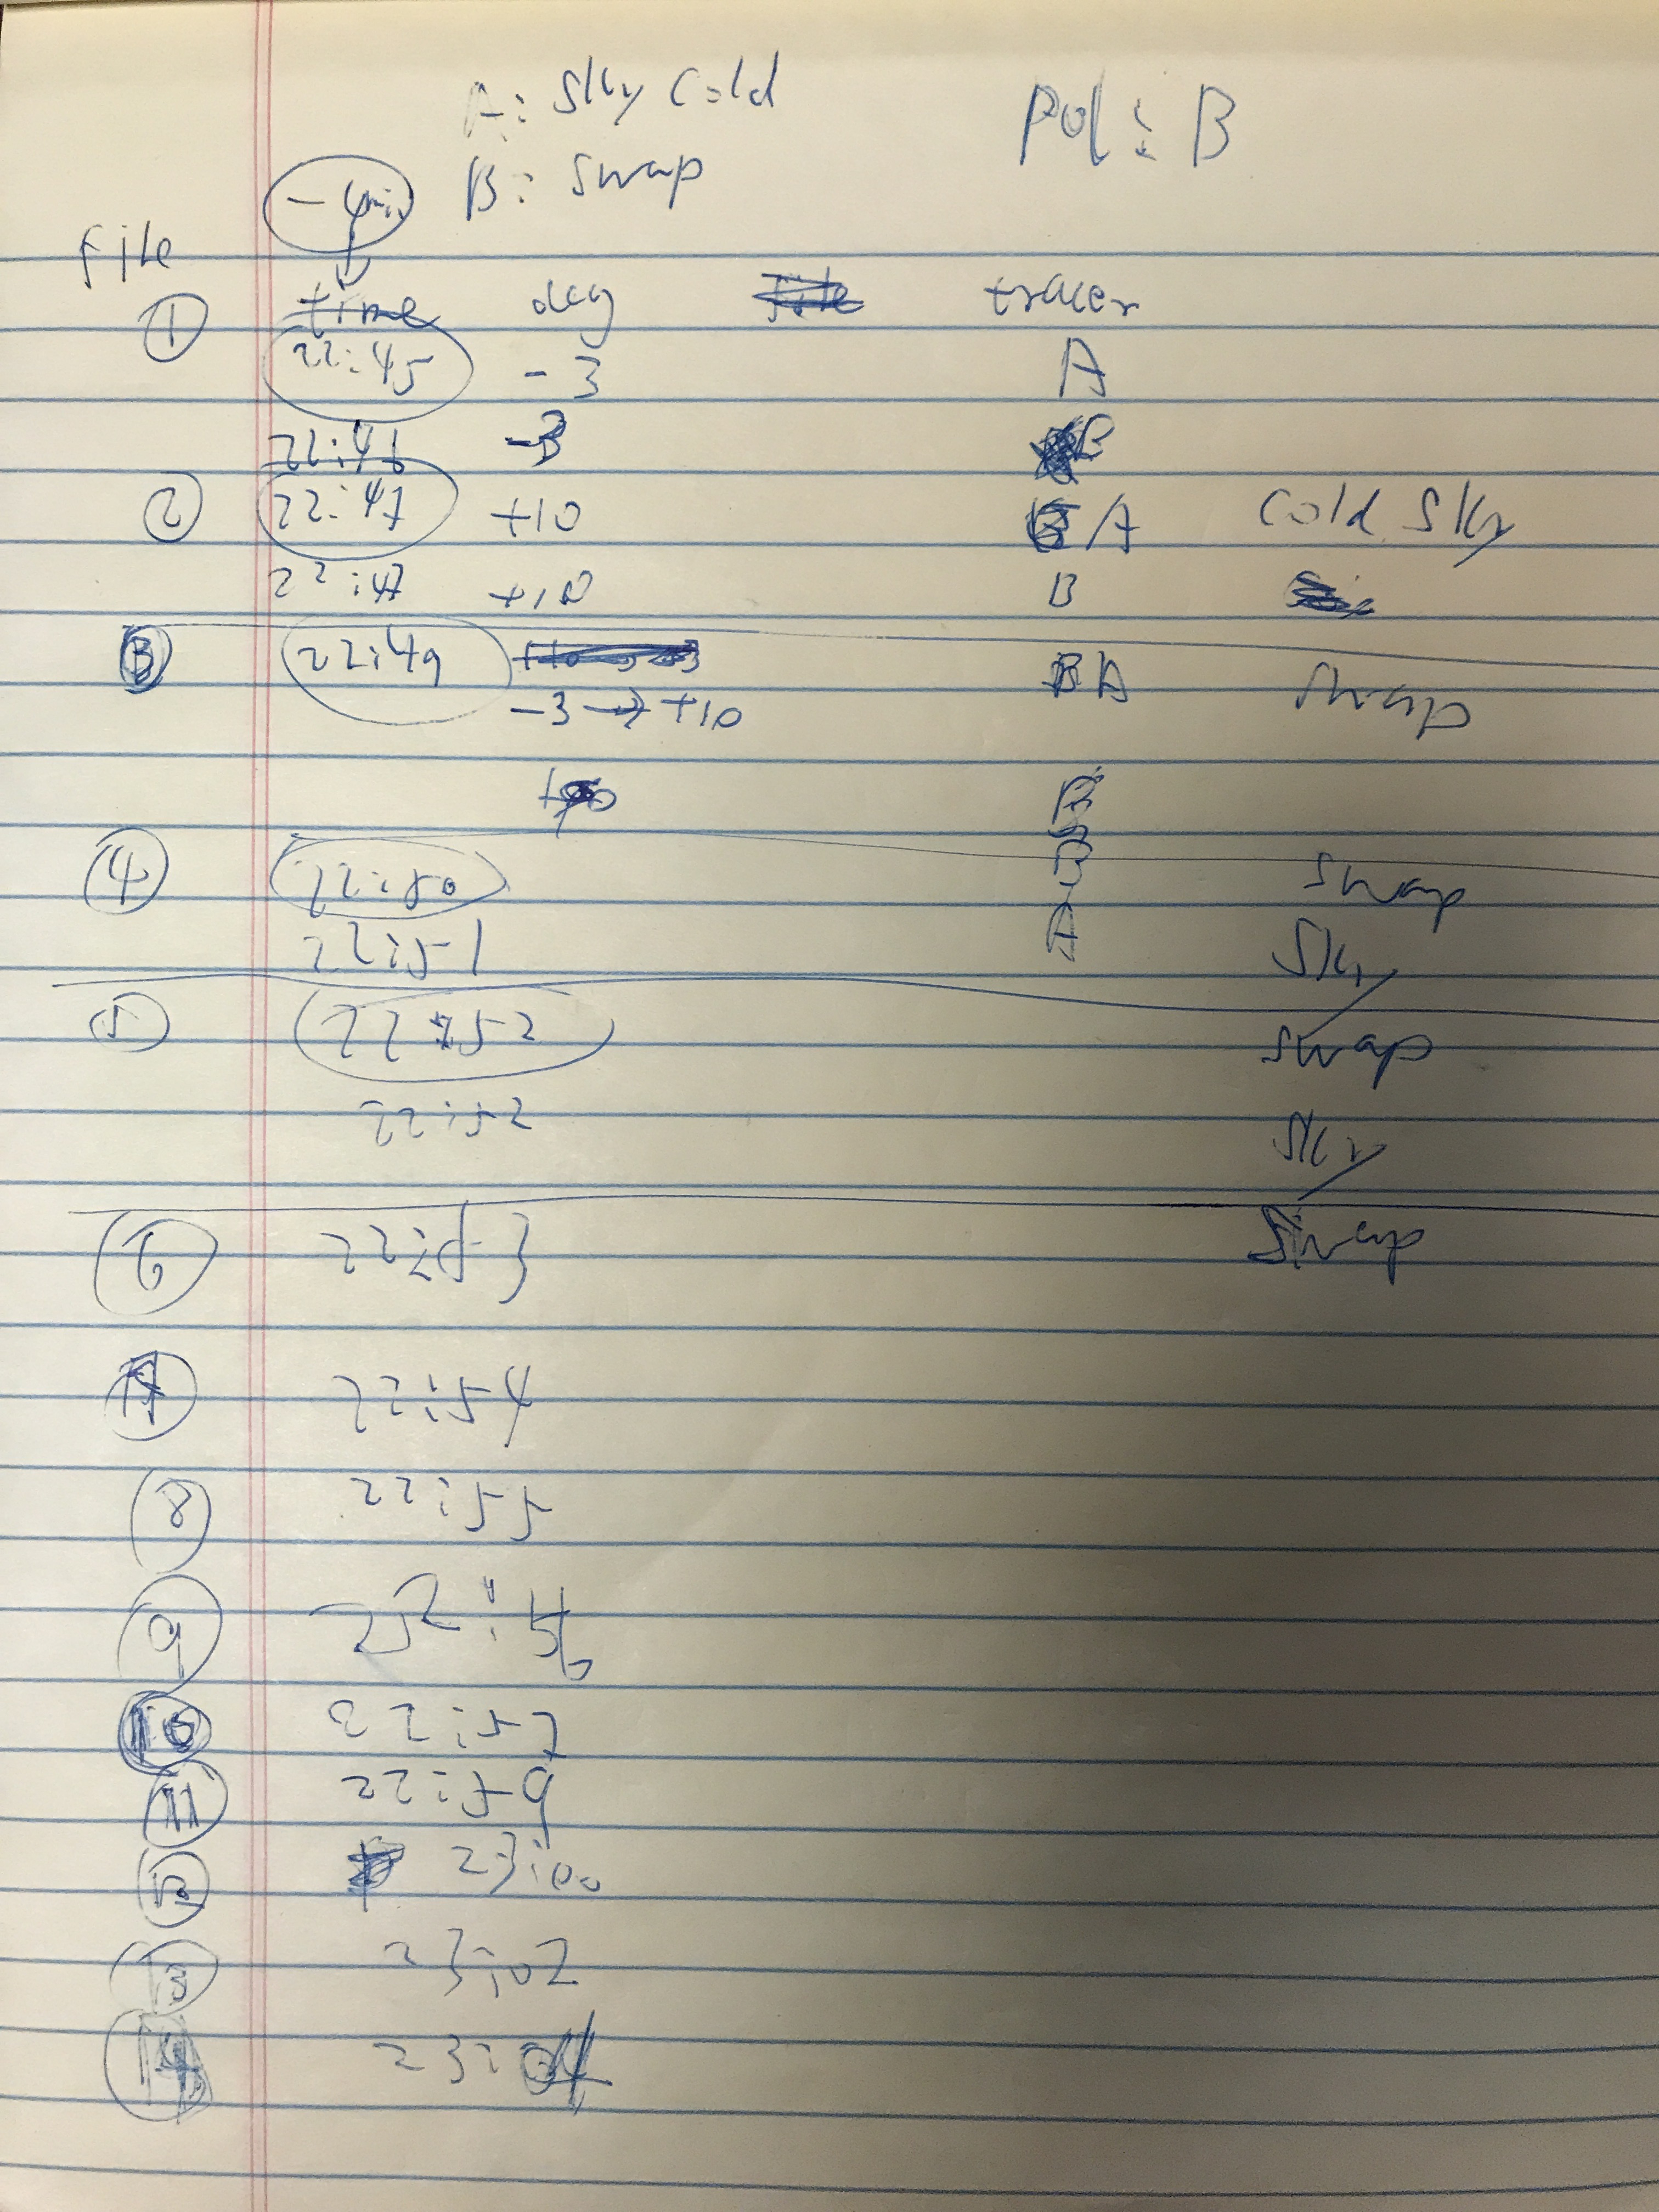 A: Sky Cold
Pol: B
B: Swap
-4min
File
time deg tracer
① 22:45 -3 A
22:46 -3 B
② 22:47 +10 A Cold Sky
22:47 +10 B
③ 22:49
-3 → +10 B A Swap
B
④ 22:50 B Swap
22:51 A Sky
⑤ 22:52 Swap
22:52 Sky
⑥ 22:53 Swap
⑦ 22:54
⑧ 22:55
⑨ 22:56
⑩ 22:57
⑪ 22:59
23:00
23:02
⑭ 23:04